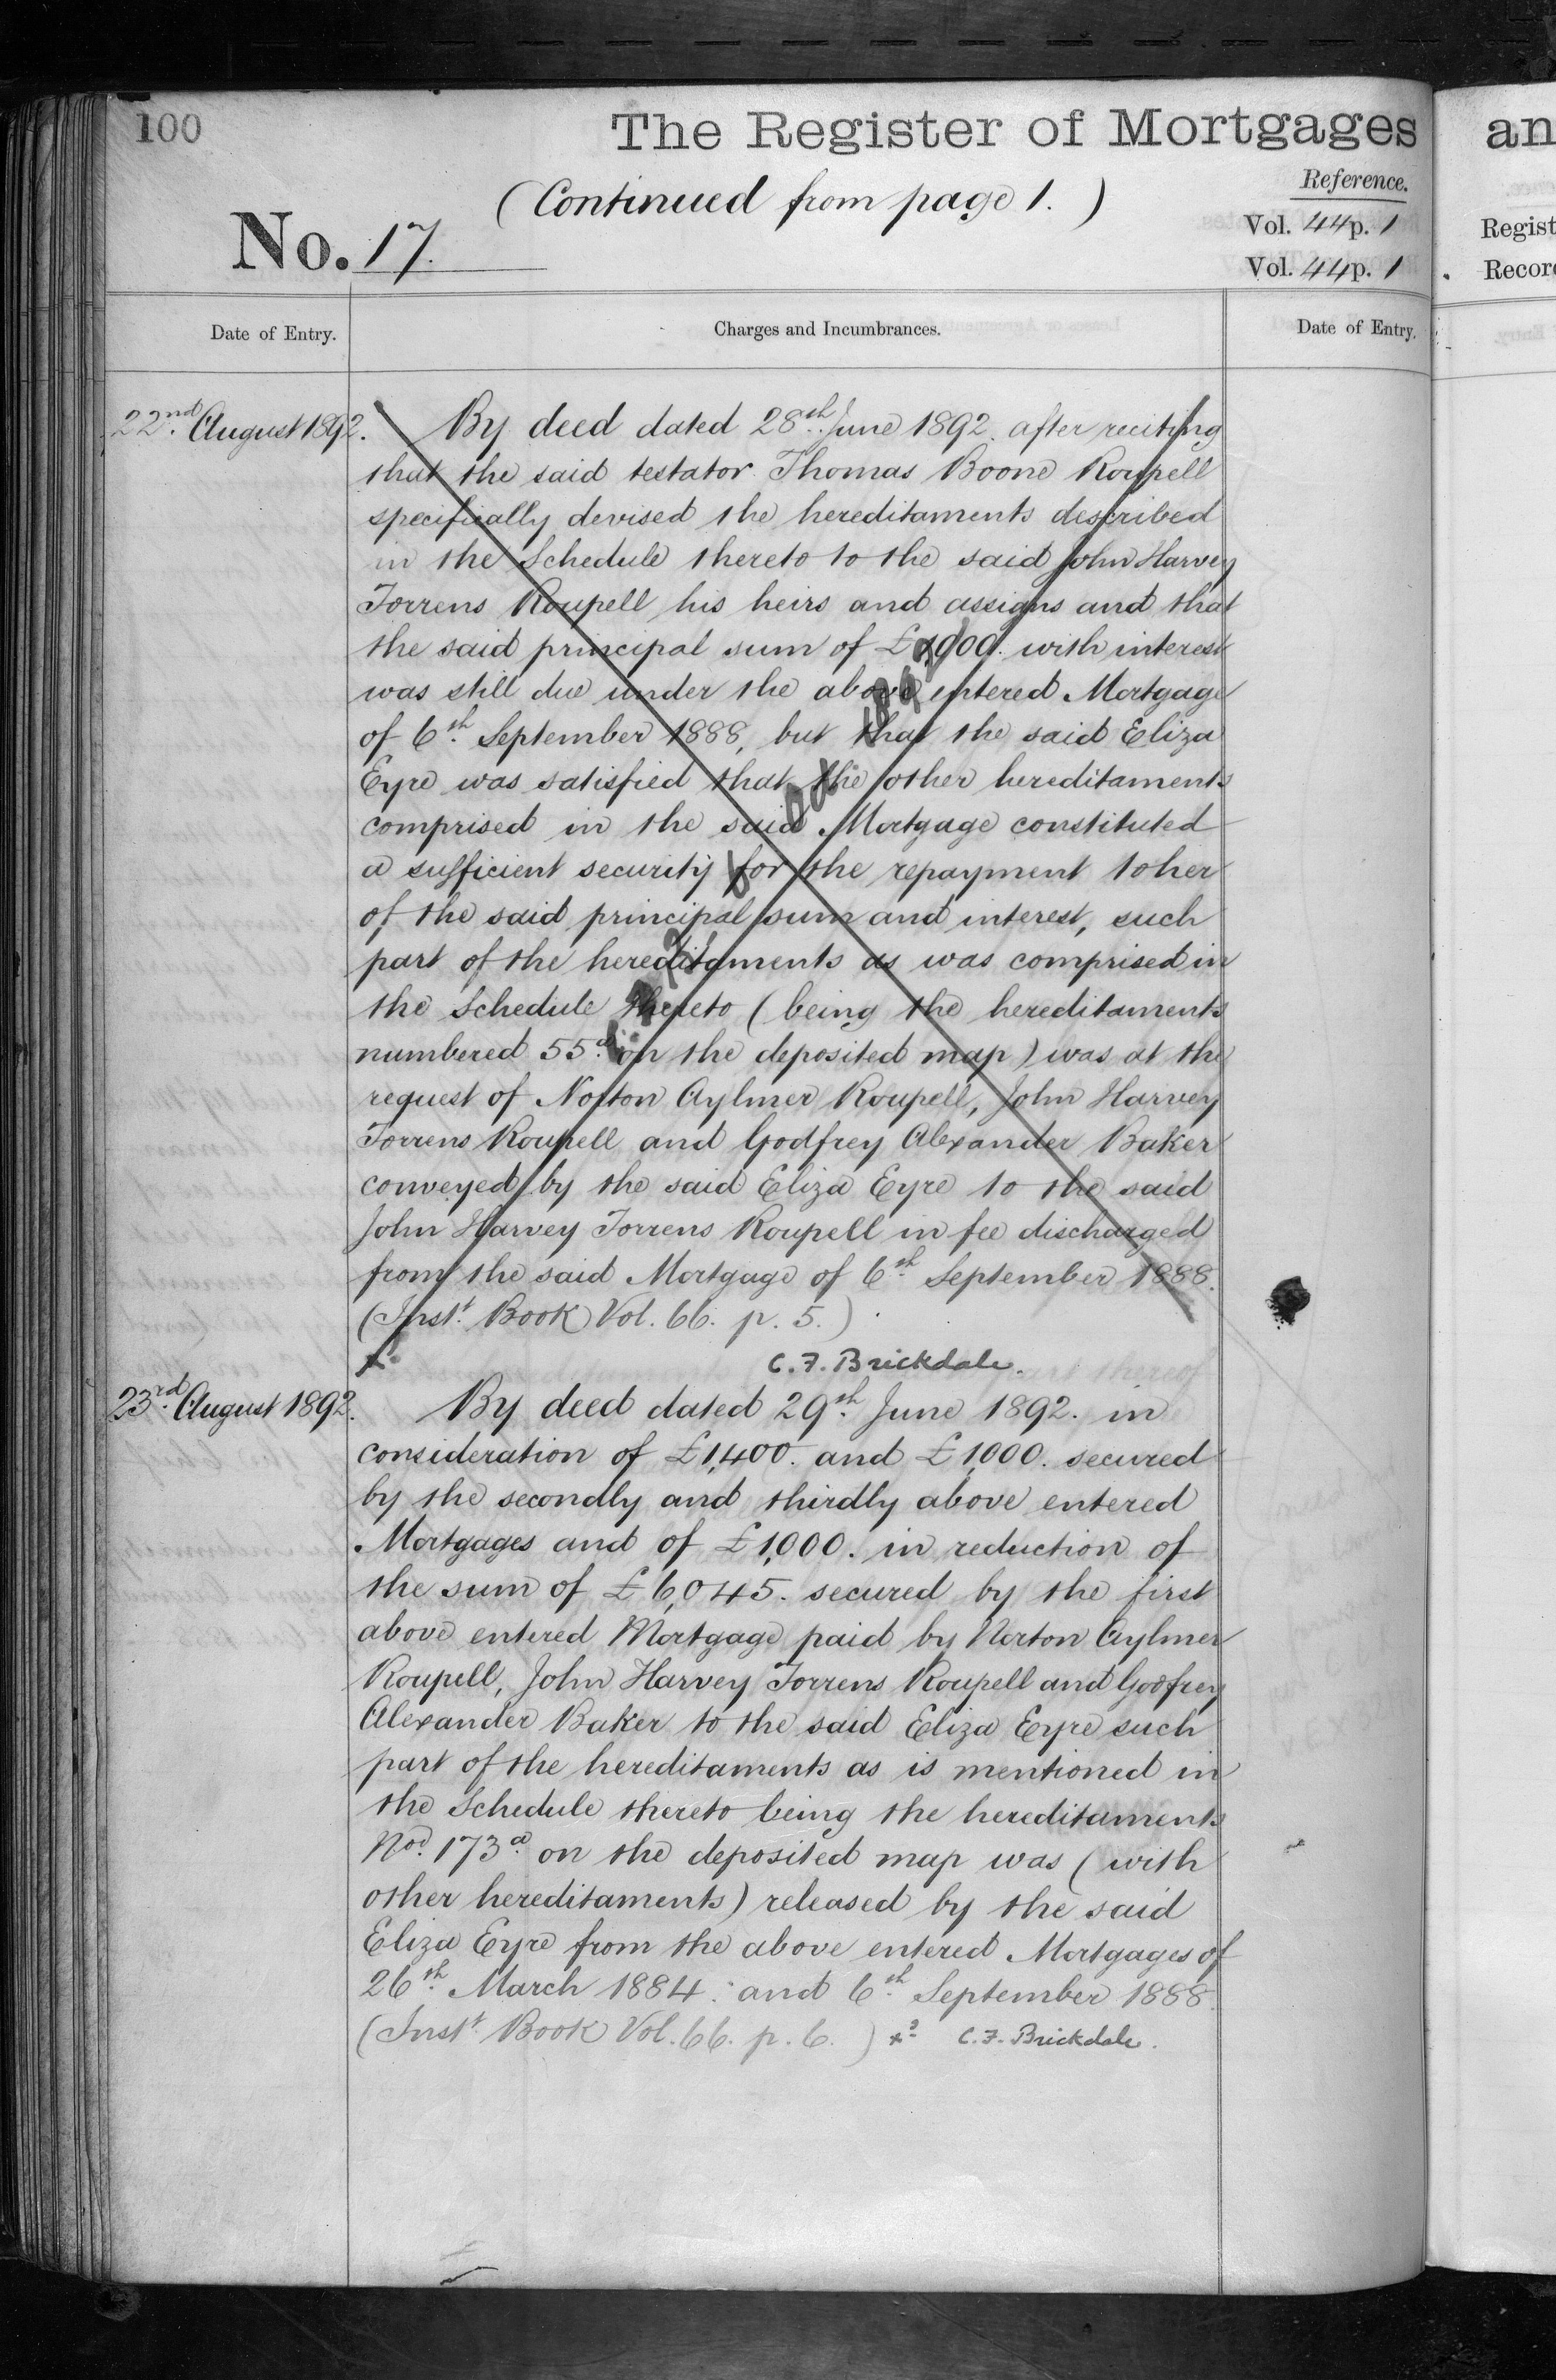 100
The Register of Mortgages
an
(Continued from page 1.)
Reference.
No. 17.
Vol. 44 p. 1
Regist
Vol. 44 p. 1
Record
Date of Entry.
Charges and Incumbrances.
Date of Entry.
22nd August 1892.
By deed dated 28th June 1892. after reciting
that the said testator Thomas Boone Roupell
specifically devised the hereditaments described
in the Schedule thereto to the said John Harvey
Torrens Roupell his heirs and assigns and that
the said principal sum of £ with interest
was still due under the above entered Mortgage
of 6th September 1888, but that the said Eliza
Eyre was satisfied that the other hereditaments
comprised in the said Mortgage constituted
a sufficient security for the repayment to her
of the said principal sum and interest, such
part of the hereditaments as was comprised in
the Schedule thereto (being the hereditaments
numbered 55a on the deposited map) was at the
request of Norton Aylmer Roupell, John Harvey
Torrens Roupell and Godfrey Alexander Baker
conveyed by the said Eliza Eyre to the said
John Harvey Torrens Roupell in fee discharged
from the said Mortgage of 6th September 1888.
(Inst. Book Vol. 66. p. 5.)
C. F. Brickdale.
23rd August 1892.
By deed dated 29th June 1892. in
consideration of £1,400. and £1,000. secured
by the secondly and thirdly above entered
Mortgages and of £1,000. in reduction of
the sum of £6,045. secured by the first
above entered Mortgage paid by Norton Aylmer
Roupell, John Harvey Torrens Roupell and Godfrey
Alexander Baker to the said Eliza Eyre such
part of the hereditaments as is mentioned in
the Schedule thereto being the hereditaments
Nod. 173a on the deposited map was (with
other hereditaments) released by the said
Eliza Eyre from the above entered Mortgages of
26th March 1884. and 6th September 1888.
(Inst. Book Vol. 66. p. 6.) C. F. Brickdale.